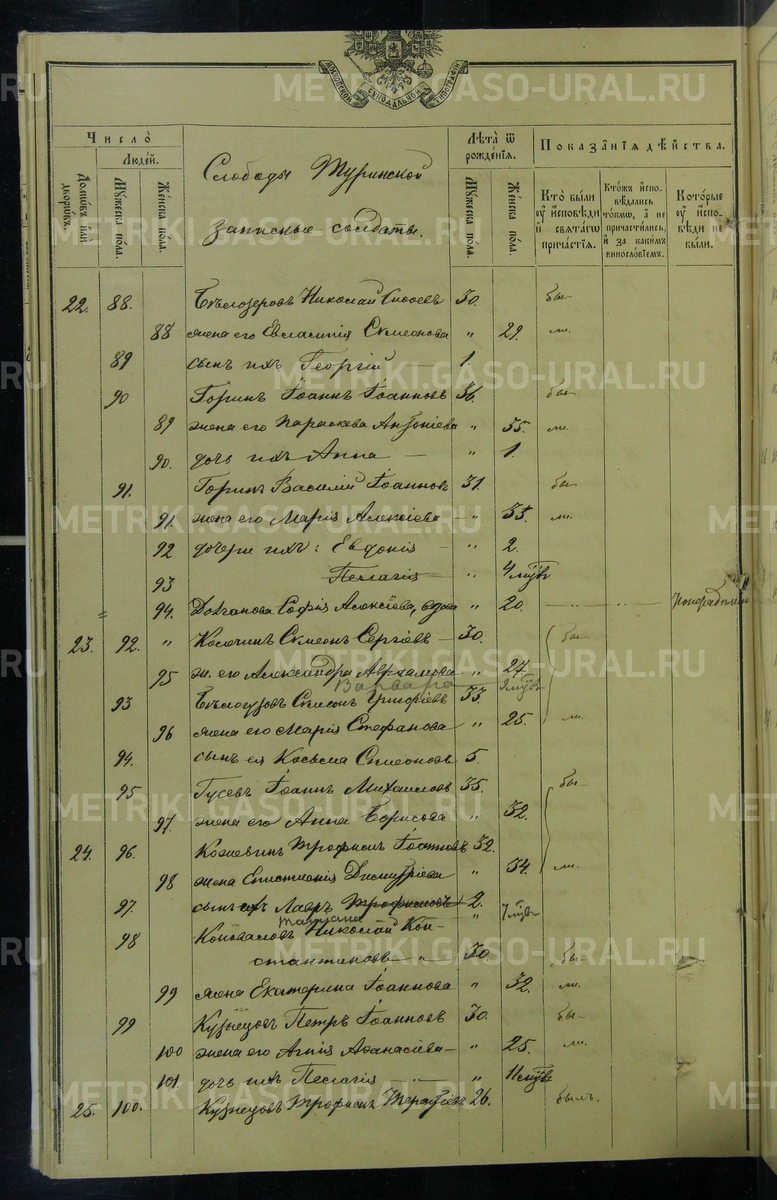 МОСКОВСКОЙ СѴНОДАЛЬНОЙ ТИПОГРАФІИ
Число̀
Людей.
Домѡвъ или дворѡвъ.
Мꙋжеска пола.
Женска пола.
Слободы Туринской
Запасные солдаты.
Лѣта ѿ рожденїѧ.
Мꙋжеска пола.
Женска пола.
Показанїѧ дѣйства.
Кто были оу исповѣди и свѧтагѡ причастїѧ.
Ктожъ исповѣдались токмѡ, а не причастились, и за какимъ винословїемъ.
Которые оу исповѣди не были.
22. 88. Бѣлозеровъ Николай 30. бы-
88 жена его Евлампія Симеонова " 29. ли.
89 сынъ ихъ Георгій — 1.
90 Горинъ Іоаннъ Іоанновъ 36. бы-
89 жена его Параскева Антоніева " 35. ли.
90. дочь ихъ Анна — " 1.
91. Горинъ Василій Іоанновъ 31. бы-
91. жена его Марія Алексіева — " 33. ли.
92 дочери ихъ: Евдокія — " 2.
93 Пелагія — " 4 мѣс
94. Софія Алексіева, вдова " 20. — " — "
23. 92. " Косачинъ Симеонъ Сергіевъ — 30. бы-
95 ж. его Александра " 24.
Варвара
93 Симеонъ Григоріевъ 33.
96 жена его Марія Стефанова " 25. ли.
94. сынъ ея Косьма Симеоновъ 5.
95 Гусевъ Іоаннъ Михаиловъ 35. бы-
97. жена его Анна Борисова " 32.
24. 96. Кожевинъ Трофимъ Іоанновъ 32.
98 жена Димитріева " 34. ли.
97. сынъ их Лавръ Трофимовъ 2.
Татіана " 7 мѣс
98 Коноваловъ Николай Кон-
стантиновъ — " — 30. бы-
99 жена Екатерина Іоаннова " 32. ли.
99 Кузнецовъ Петръ Іоанновъ 30. бы-
100 жена его Агнія Аѳанасіева — " 25. ли.
101. дочь ихъ Пелагія — " 11 мѣс
25. 100. Кузнецовъ Трофимъ 26. былъ.
METRIKI.GASO-URAL.RU